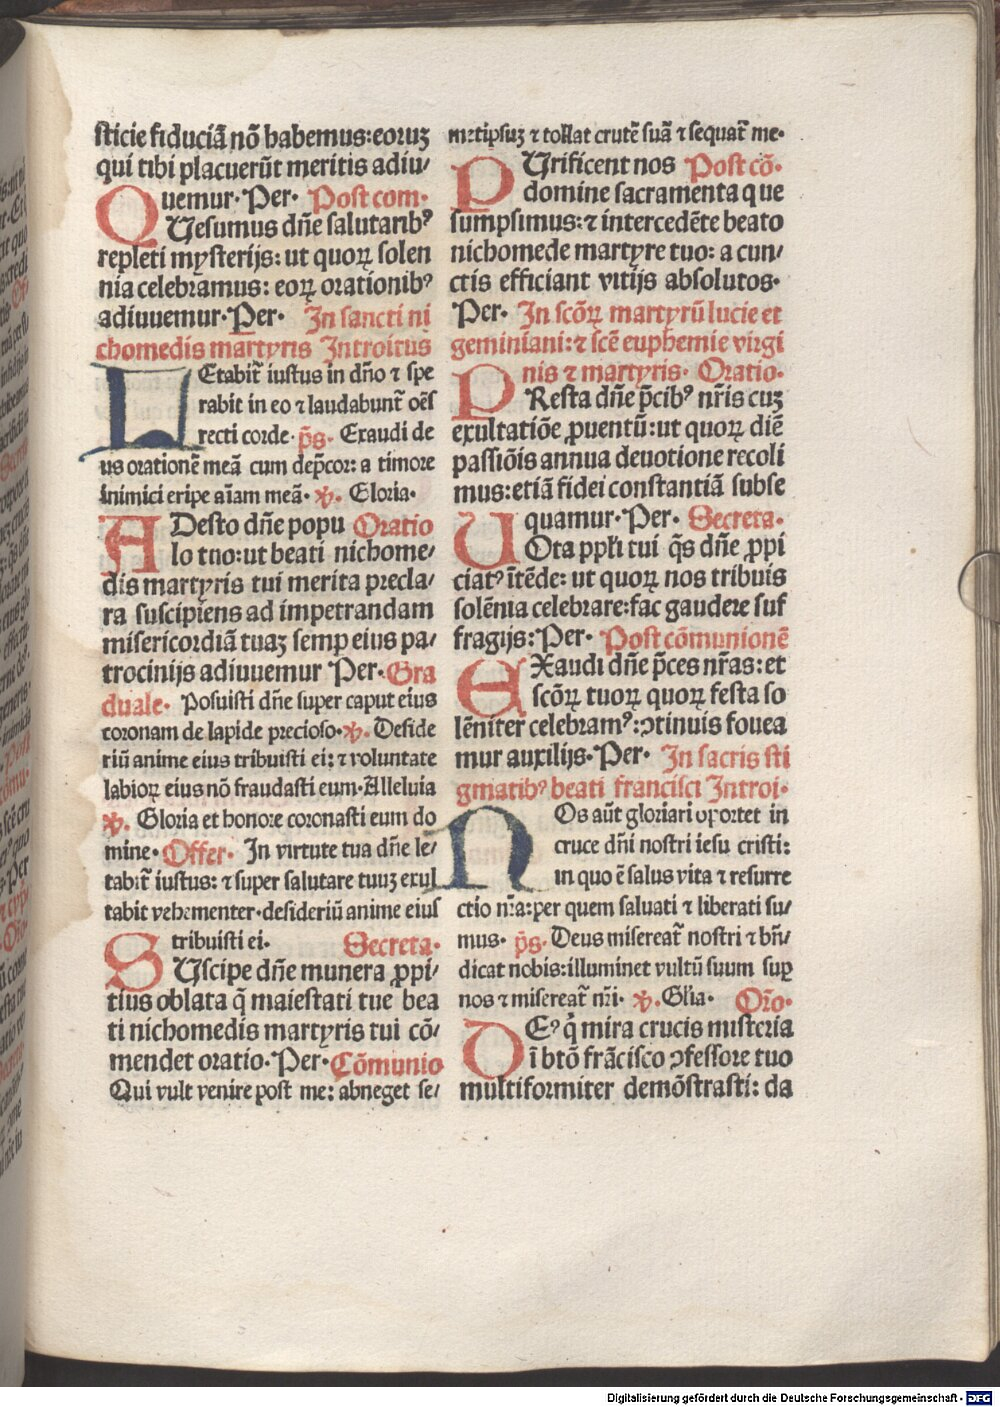 sticie fiduciã nõ habemus: eoruꝫ
qui tibi placuerũt meritis adiu/
Quemur· Per· Post com·
Uesumus dñe salutaribꝰ
repleti mysterijs: ut quoꝝ solen
nia celebramus: eoꝝ orationibꝰ
adiuuemur· Per· In sancti ni
chomedis martyris Introitus
LEtabit̃ iustus in dño ⁊ spe
rabit in eo ⁊ laudabunt oẽs
recti corde· p̃s· Exaudi de
us orationẽ meã cum dep̃cor: a timore
inimici eripe aĩam meã· ℣· Gloria·
ADesto dñe popu Oratio
lo tuo: ut beati nichome/
dis martyris tui merita precla/
ra suscipiens ad impetrandam
misericordiã tuaꝫ semꝑ eius pa/
trocinijs adiuuemur Per· Gra
duale· Posuisti dñe super caput eius
coronam de lapide precioso· ℣· Deside
riũ anime eius tribuisti ei: ⁊ voluntate
labioꝝ eius nõ fraudasti eum· Alleluia
℣· Gloria et honore coronasti eum do
mine· Offer· In virtute tua dñe le/
tabit̃ iustus: ⁊ super salutare tuuꝫ exul
tabit vehementer· desideriũ anime eius
tribuisti ei· Secreta·
SUscipe dñe munera ꝓpi/
tius oblata q̃ maiestati tue bea
ti nichomedis martyris tui cõ/
mendet oratio· Per· Cõmunio
Qui vult venire post me: abneget se/
metipsuꝫ ⁊ tollat crucẽ suã ⁊ sequat̃ me·
PUrificent nos Post cõ·
domine sacramenta que
sumpsimus: ⁊ intercedẽte beato
nichomede martyre tuo: a cun/
ctis efficiant vitijs absolutos·
Per· In scõꝝ martyrũ lucie et
geminiani: ⁊ scẽ euphemie virgi
nis ⁊ martyris· Oratio·
PResta dñe p̃cibꝰ nr̃is cuꝫ
exultatiõe ꝓuentũ: ut quoꝝ diẽ
passiõis annua deuotione recoli
mus: etiã fidei constantiã subse
quamur· Per· Secreta·
UOta ppľi tui q̃s dñe ꝓpi
ciatꝰ ĩtẽde: ut quoꝝ nos tribuis
solẽnia celebrare: fac gaudere suf
fragijs: Per· Post cõmunionẽ
EXaudi dñe p̃ces nr̃as: et
scõꝝ tuoꝝ quoꝝ festa so
lẽniter celebramꝰ: ꝯtinuis fouea
mur auxilijs· Per· In sacris sti
gmatibꝰ beati francisci Introi·
NOs aũt gloriari oportet in
cruce dñi nostri iesu cristi:
in quo ẽ salus vita ⁊ resurre
ctio nr̃a: per quem saluati ⁊ liberati su/
mus· p̃s· Deus misereat̃ nostri ⁊ bñ/
dicat nobis: illuminet vultũ suum suꝑ
nos ⁊ misereat̃ nr̃i· ℣· Glĩa· Orõ·
DEꝰ q̃ mira crucis misteria
ĩ btõ frãcisco ꝯfessore tuo
multiformiter demõstrasti: da
Digitalisierung gefördert durch die Deutsche Forschungsgemeinschaft - DFG